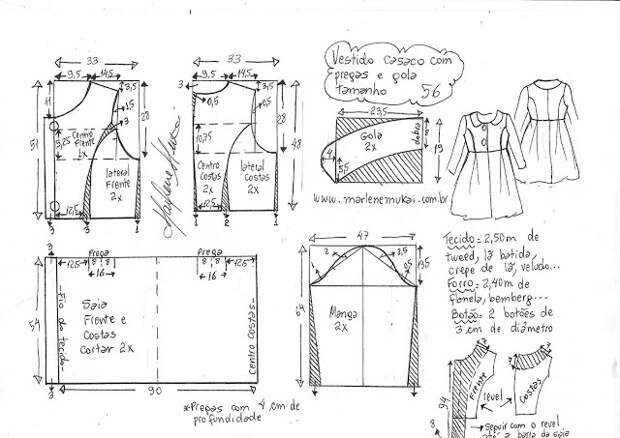 Vestido casaco com
pregas e gola
tamanho 56
33
9,5 14,5
3,5
11
1,5
3
51
28
Centro
Frente
1x
3,25
lateral
Frente
2x
12,5
3 3 1
Marlene Mukai
33
9,5 14,5
3,5
0,5
0,5
10,25
28
48
Centro
Costas
2x
lateral
Costas
2x
12,5
2 1
23,5
Gola
2x
dobra
19
4
5,5
www.marlenemukai.com.br
3
Prega Prega
12,5 8 8 8 8
16 16
54
Fio do tecido
Saia
Frente e
Costas
Cortar 2x
Centro costas
3
90
*Pregas com 4 cm de
profundidade
47
2 2,5
0,5
64
Manga
2x
Tecido= 2,50m de
tweed, lã batida,
crepe de lã, veludo...
Forro= 2,40m de
flanela, bemberg...
Botão= 2 botões de
3 cm de diâmetro
7
7
Frente
Costas
revel
94
8
Seguir com o revel
até a barra da saia